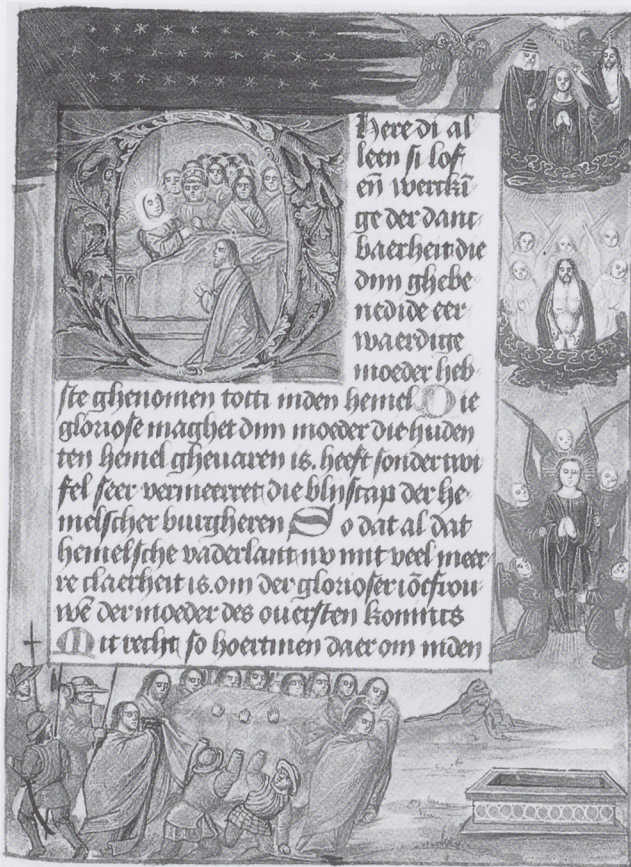 Here di al
leen si lof
eñ werckī
ge der danc
baerheit die
dijn ghebe
nedide eer
waerdige
moeder heb
ste ghenomen totti inden hemel Die
gloriose maghet dijn moeder die huden
ten hemel ghevaren is. heeft sonder twi
fel seer vermeerret die blijscap der he
melscher burgheren So dat al dat
hemelsche vaderlant nv mit veel meer
re claerheit is. om der glorioser iōcfrou
wē der moeder des ouersten konincs
Mit recht so hoertmen daer om inden